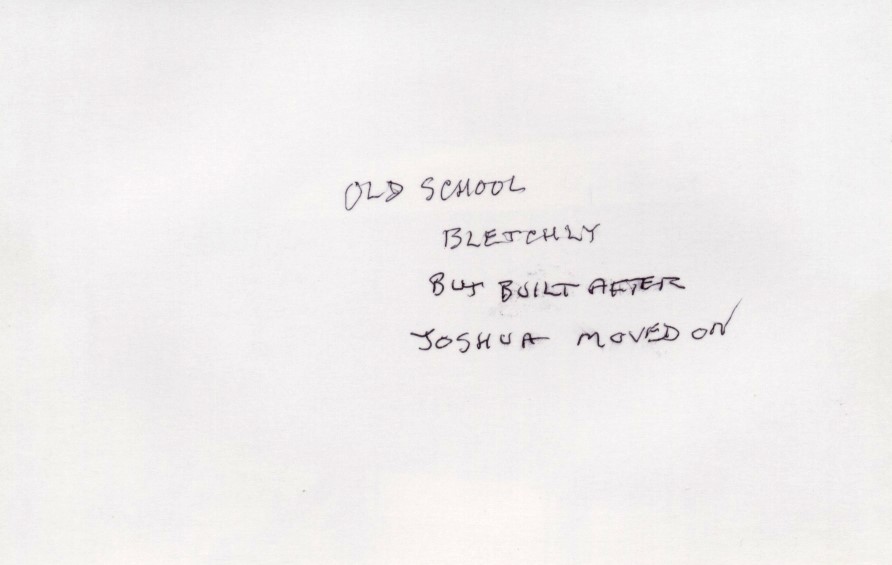 OLD SCHOOL
BLETCHLY
BUT BUILT AFTER
JOSHUA MOVED ON